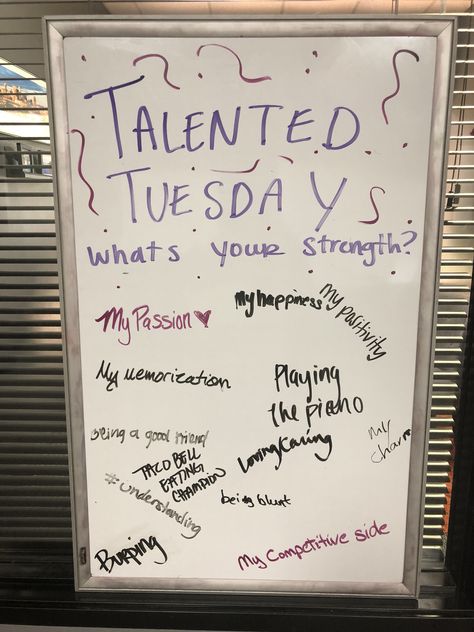 TALENTED
TUESDAY
whats your strength?
My Passion ♥
My happiness
My positivity
My Memorization
Playing
the piano
being a good friend
My charm
TACO BELL
EATING
CHAMPION
loving/caring
#understanding
being blunt
Burping
My Competitive side